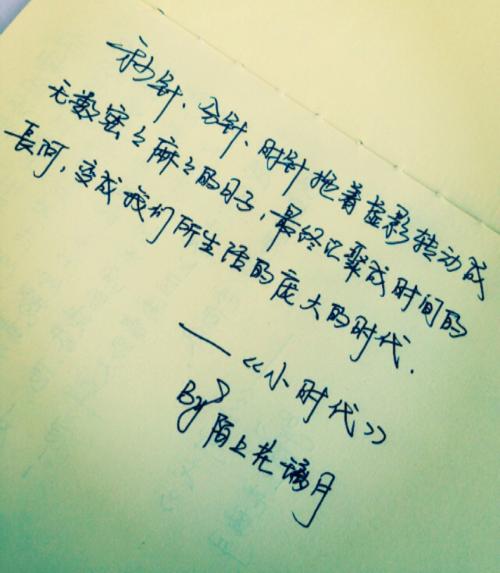 秒针、分针、时针拖着虚影转动成
无数密之麻之的日子,最终汇聚成时间的
長河,变成我们所生活的庞大的时代.
——《小时代》
By 陌上花谒月